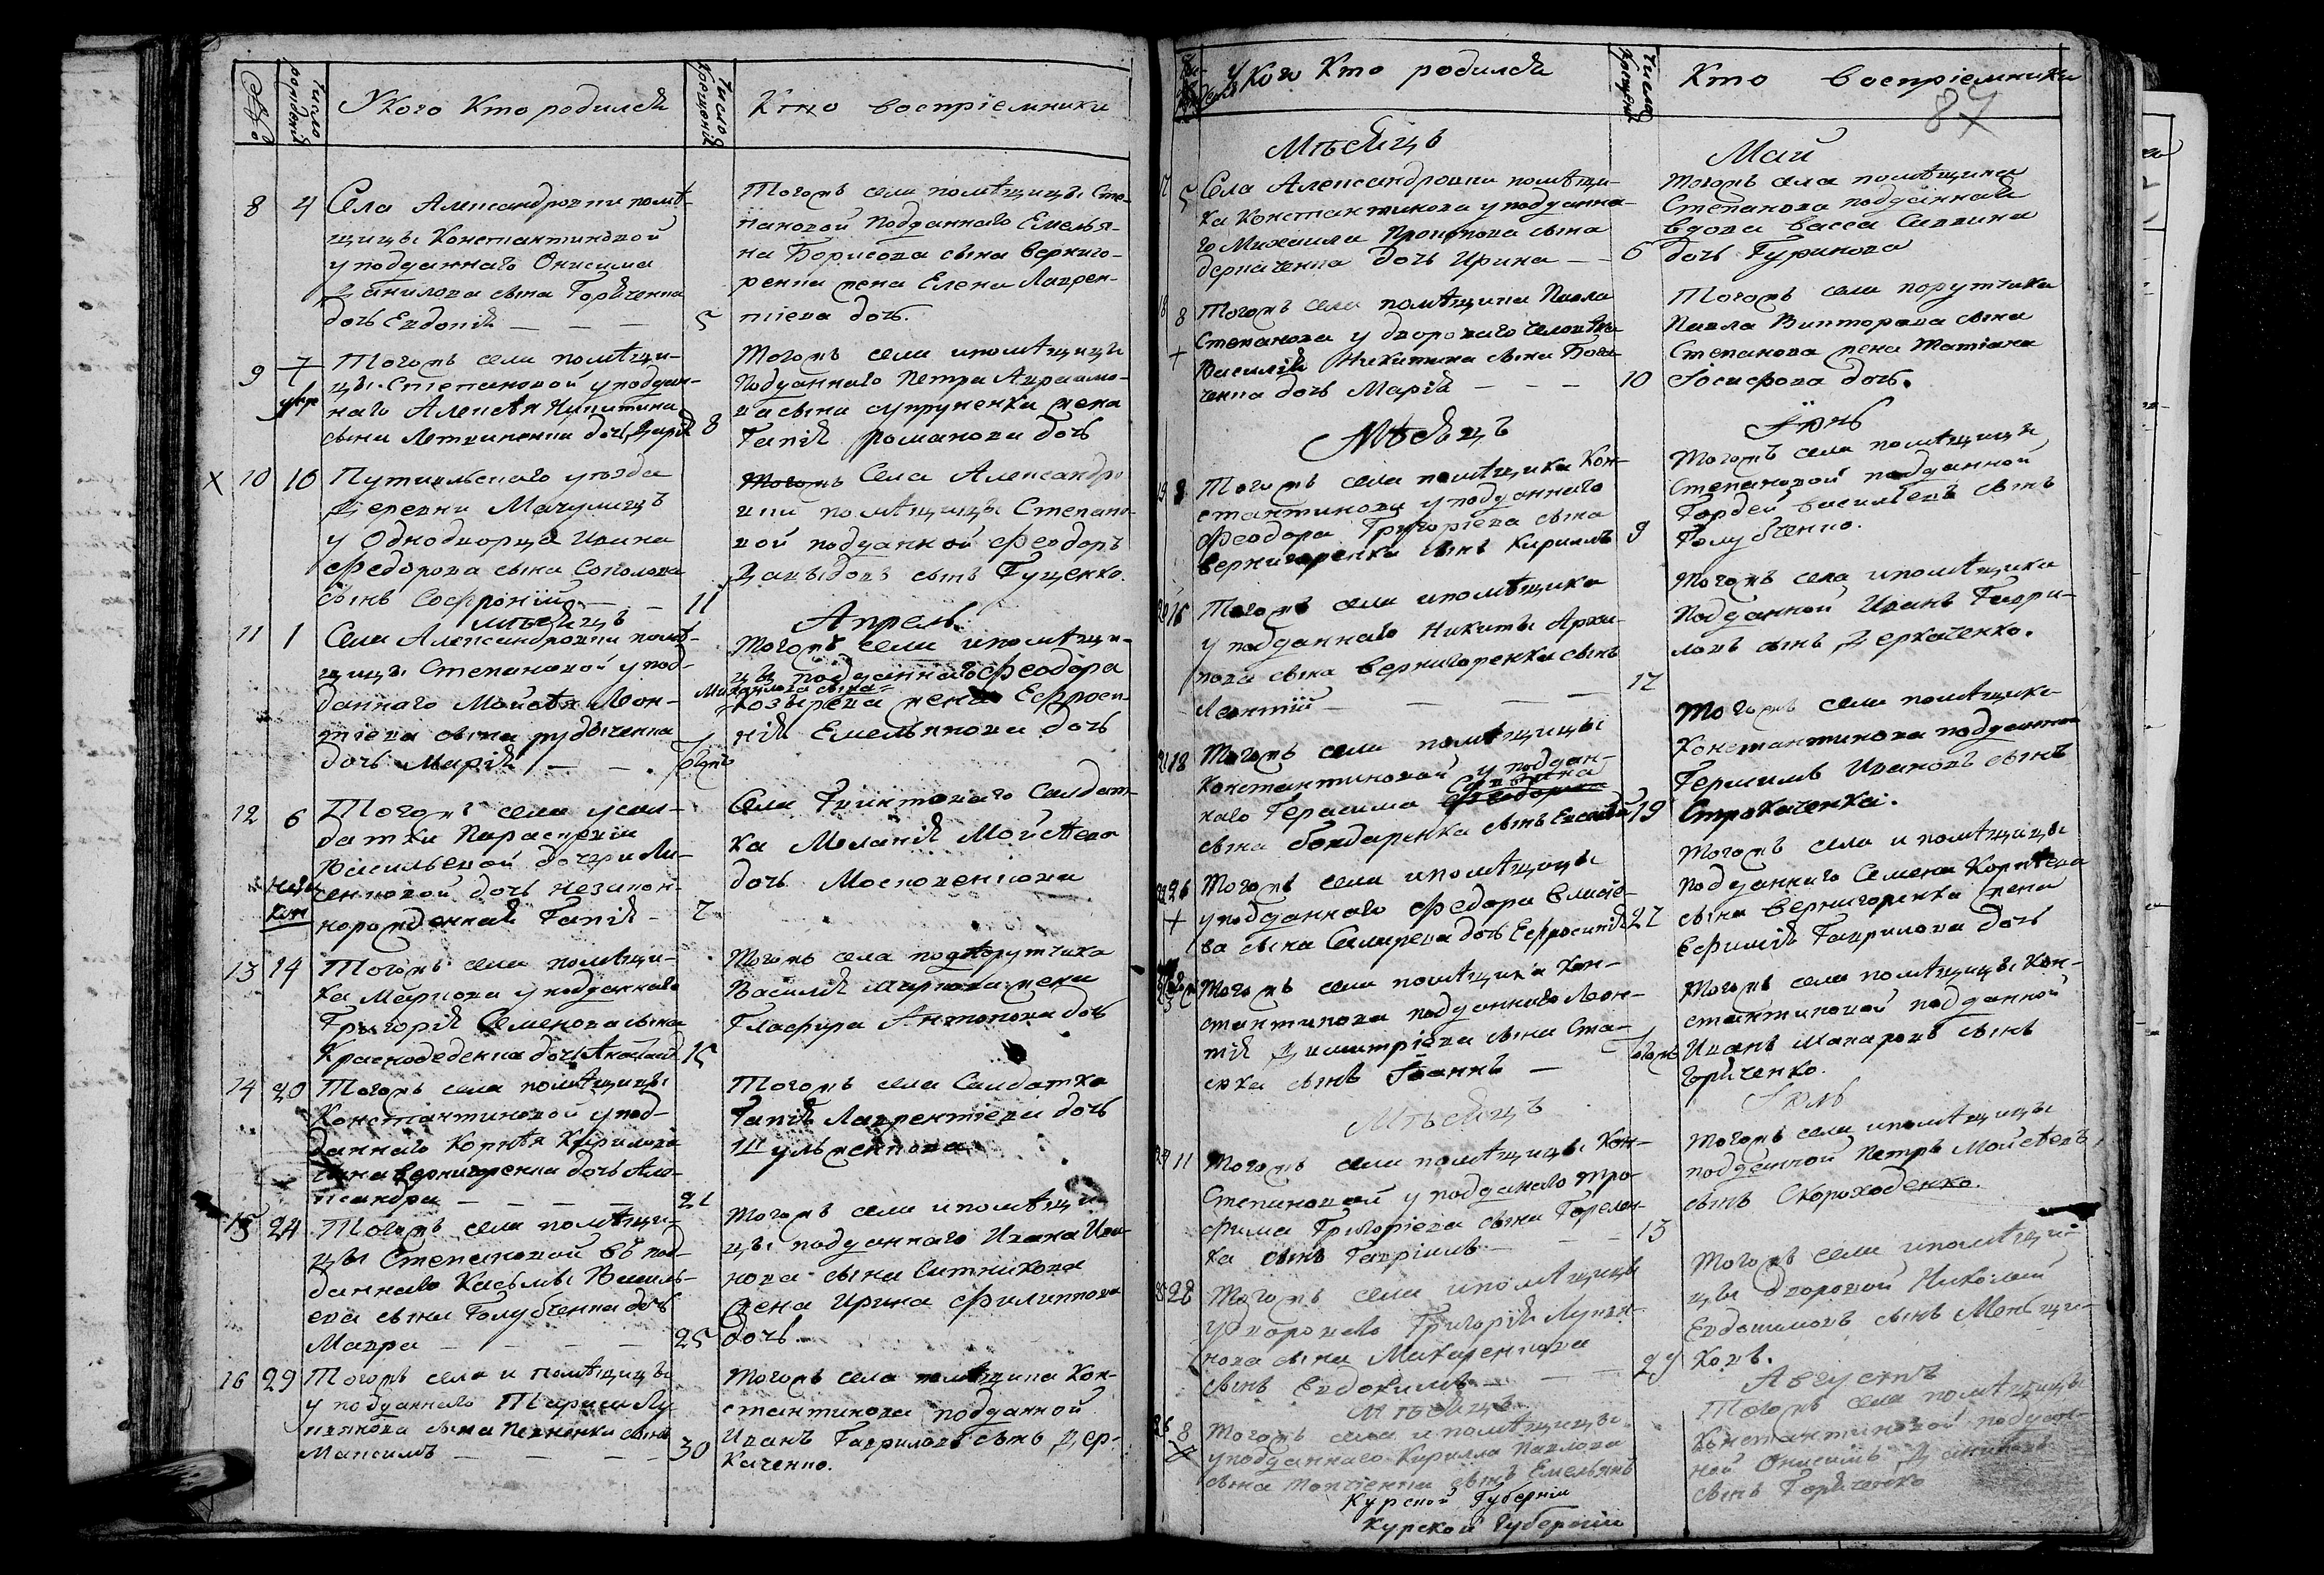 №
число рождения
У кого кто родился
число крещения
Кто восприемники
8 4 Села Александровки помѣ-
щицы Константиновой
у подданнаго Онисима
Данилова сына Горяченка
дочь Евдокия
5
Тогожъ села помѣщицы Сте-
пановой подданнаго Емелья-
на Борисова сына Верниго-
ренка жена Елена Лаврен-
тиева дочь.
9 7 Тогожъ села помѣщи-
цы Степановой у поддан-
наго Алексѣя Никитина
сына Литвиненка дочь Дария
8
Тогожъ села и помѣщицы
подданнаго Петра Авраамо-
ва сына Супруненка жена
Гапия Романова дочь
х 10 10 Путивльскаго уезда
Деревни
у Однодворца Ивана
Федорова сына Соколова
сынъ Софроний
11
Тогожъ Села Александро
вки помѣщицы Степано-
вой подданной Феодоръ
Давыдовъ сынъ Гуценко.
мѣсяцъ Апрель
11 1 Села Александровки помѣ-
щицы Степановой у под-
даннаго Мойсѣя Леон-
тиева сына Рудыченка
дочь Мария
Тогожъ
Тогожъ села и помѣщи-
цы подданнаго Феодора
Михайлова сына
Козырева жена Ефроси-
ния Емельянова дочь
12 6 Тогожъ села у сол-
датки Параскевии
Васильевой дочери Ли-
сенковой дочь незакон-
норожденная Гапия
7
Села солдат-
ка Мелания Мойсѣева
дочь Москаленкова
13 14 Тогожъ села помѣщи-
ка Маркова у подданнаго
Григория Семенова сына
Краснодеденка дочь
15
Тогожъ села подпорутчика
Василия Маркова жена
Гласфира Антонова дочь
14 20 Тогожъ села помѣщицы
Константиновой у под-
даннаго Корнѣя Кирилова
сына Вернигоренка дочь Але-
ксандра
21
Тогожъ села Солдатка
Гапия Лаврентиева дочь
Шульженкова
15 24 Тогожъ села помѣщи-
цы Степановой въ под-
даннаго Касьмы Василь-
ева сына Голубченка дочь
Мавра
25
Тогожъ села и помѣщи-
цы подданнаго Ивана Ива-
нова сына Ситникова
жена Ирина Филиппова
дочь
16 29 Тогожъ села и помѣщицы
у подданнаго Тараса Лу
кянова сына сынъ
Максимъ
30
Тогожъ села помѣщика Кон-
стантинова подданной
Иванъ Гавриловъ сынъ Дер-
каченко.
У кого кто родился
число крещения
Кто восприемники
87
Мѣсяцъ Май
17 5 Села Александровки помѣщи-
ка Константинова у подданна-
го Михаила Прокопова сына
Деркаченка дочь Ирина
6
Тогожъ села помѣщика
Степанова подданная
вдова Васса Саввина
дочь Гуринова
18 8 Тогожъ села помѣщика Павла
Степанова у двороваго человѣка
Василия Никитина сына Бога-
ченка дочь Мария
10
Тогожъ села порутчика
Павла Викторова сына
Степанова жена Татиана
Иосифова дочь.
Мѣсяцъ Іюнь
19 8 Тогожъ села помѣщика Кон-
стантинова у подданнаго
Феодора Григориева сына
Вернигоренка сынъ Кирилъ
9
Тогожъ села помѣщицы
Степановой подданной
Гордей Васильевъ сынъ
Голубченко.
20 16 Тогожъ села и помѣщика
у подданнаго Никиты Архи-
пова сына Вернигоренка сынъ
Леонтий
17
Тогожъ села и помѣщика
подданной Иванъ Гаври-
ловъ сынъ Деркаченко.
21 18 Тогожъ села помѣщицы
Константиновой у поддан-
наго Герасима Саввина
сына Бондаренка сынъ
19
Тогожъ села помѣщика
Константинова подданной
Герасимъ Ивановъ сынъ
Строкаченка.
22 26 Тогожъ села и помѣщицы
у подданнаго Федора Елисе-
ва сына дочь Ефросиния
27
Тогожъ села и помѣщицы
подданнаго Семена Корнѣева
сына Вернигоренка жена
Ефимия Гаврилова дочь
Тогожъ села помѣщика Кон-
стантинова подданнаго Леон-
тия Димитриева сына Ста-
сенка сынъ Іоаннъ
Тогожъ
Тогожъ села помѣщицы Кон-
стантиновой подданной
Иванъ Макаровъ сынъ
Горяченко.
Мѣсяцъ Іюль
24 11 Тогожъ села помѣщицы Кон-
Степановой у подданаго Тро-
фима Григориева сына Горелен-
ка сынъ Гавриилъ
13
Тогожъ села и помѣщицы
подданной Петръ Мойсѣевъ
сынъ Скороходенко.
25 28 Тогожъ села и помѣщицы
у двороваго Григория Лукья-
нова сына Макаренкова
сынъ Евдокимъ
29
Тогожъ села и помѣщи-
цы дворовой Николай
Евдокимовъ сынъ Меньщи-
ковъ.
Мѣсяцъ Августъ
26 8 Тогожъ села и помѣщицы
у подданнаго Кирилла Павлова
сына сынъ Емельянъ
Тогожъ села помѣщицы
Константиновой поддан-
ной Онисимъ Даниловъ
сынъ Горяченко
Курской Губернии
Курской Губернии